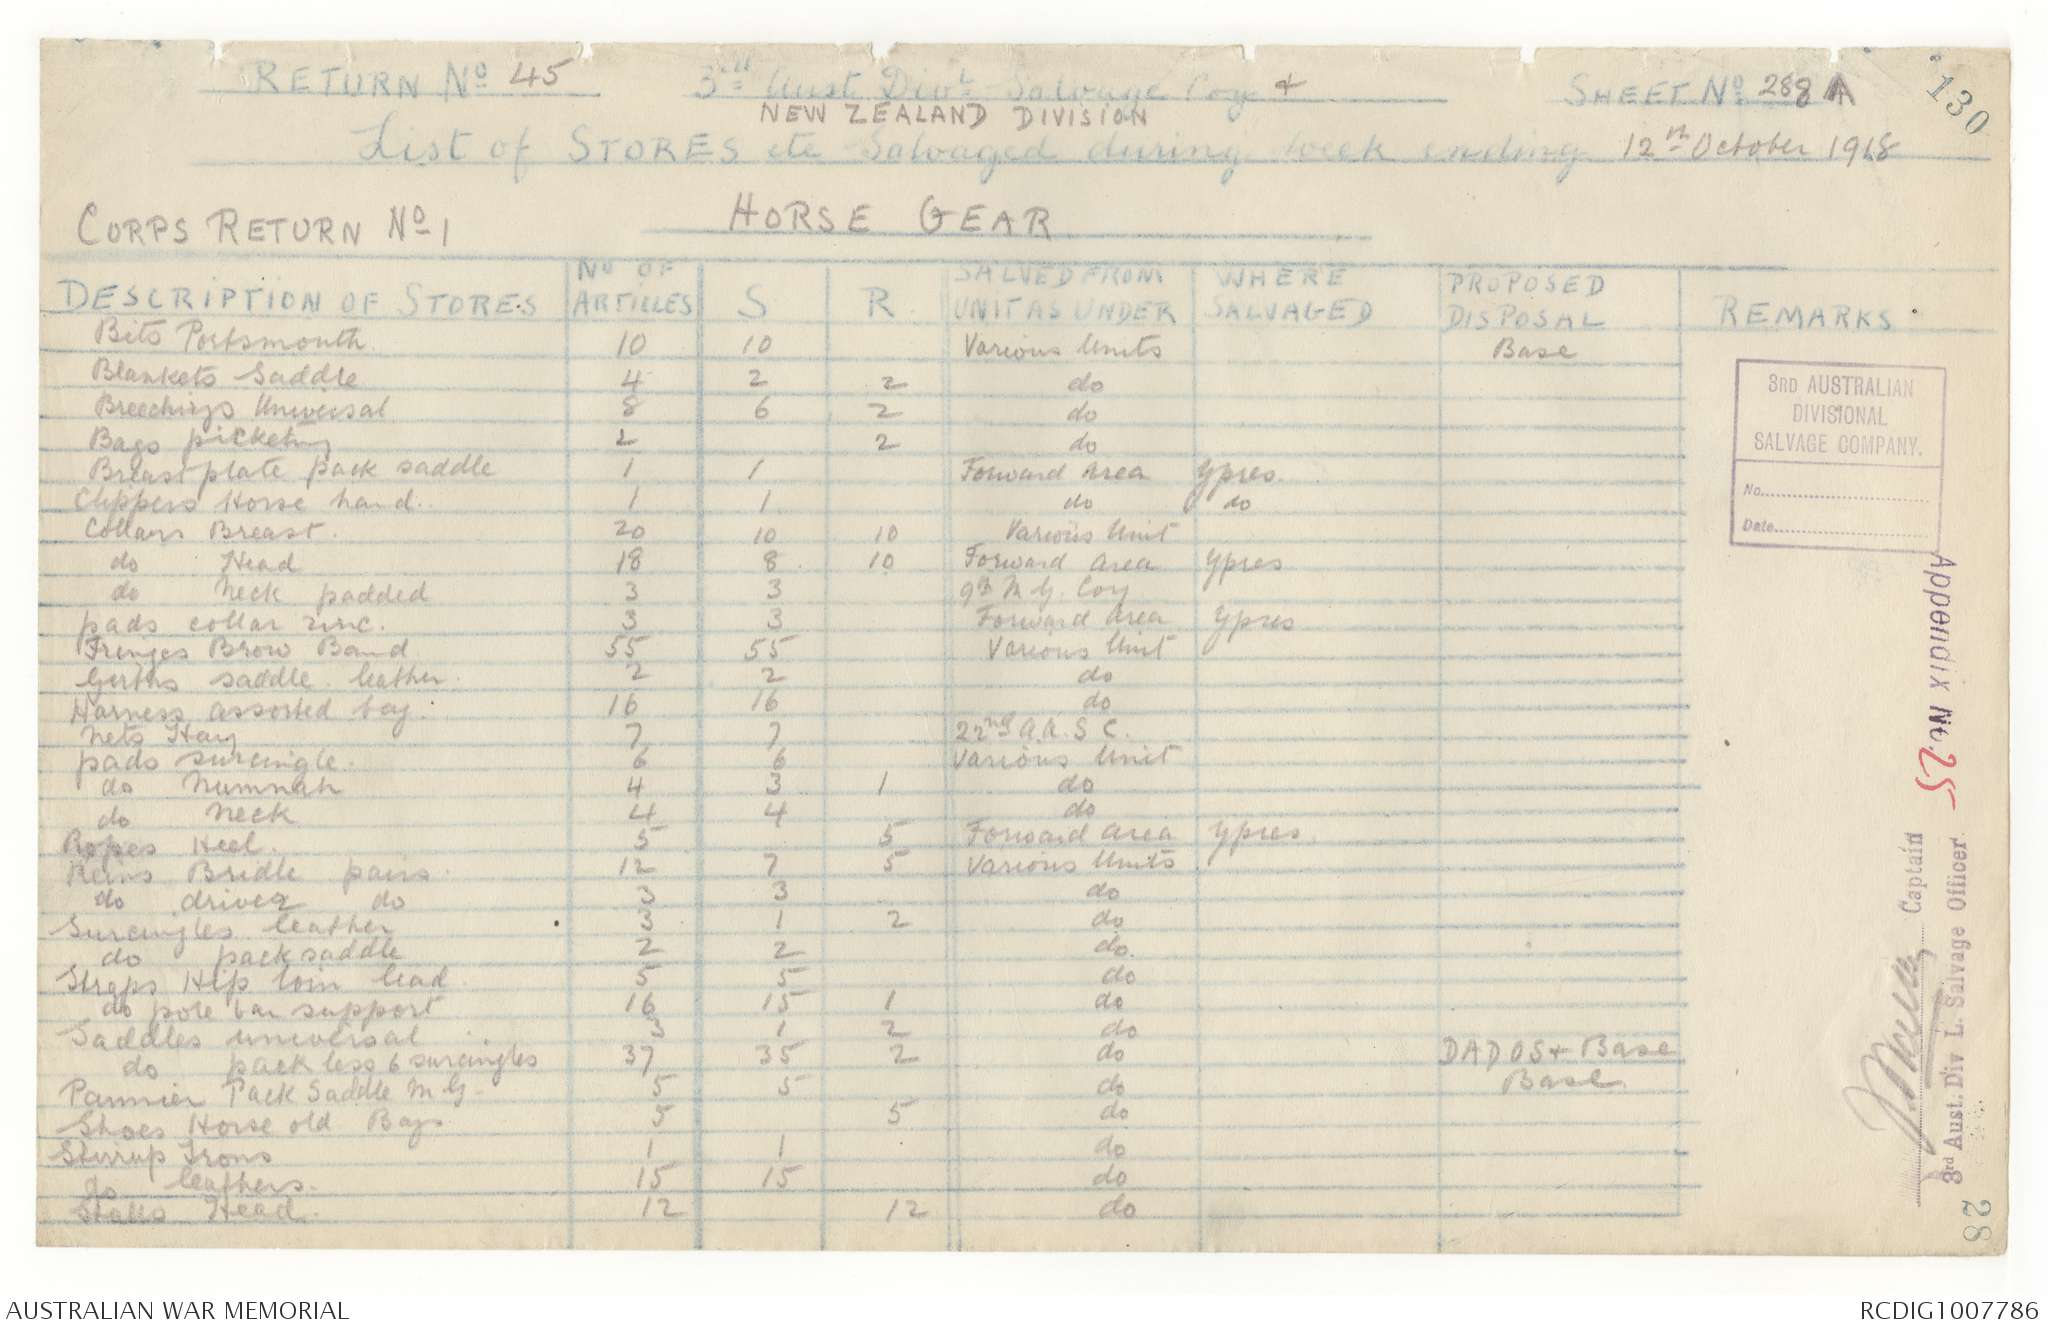 RETURN No 45 3rd Aust Divl Salvage Coy + SHEET No 288 A
130
NEW ZEALAND DIVISION
List of STORES etc Salvaged during week ending 12th October 1918
CORPS RETURN No 1 HORSE GEAR
DESCRIPTION OF STORES. No OF ARTICLES S R. SALVED FROM UNIT AS UNDER WHERE SALVAGED PROPOSED DISPOSAL REMARKS
Bits Portsmouth 10 10 Various Units Base
Blankets Saddle 4 2 2 do
Breechings Universal 8 6 2 do
Bags picketing 2 2 do
Breast plate pack saddle 1 1 Forward Area Ypres.
Clippers Horse hand. 1 1 do do
Collars Breast. 20 10 10 Various Unit
do Head 18 8 10 Forward Area Ypres
do Neck padded 3 3 9th M.G. Coy
pads collar zinc. 3 3 Forward Area Ypres
Fringes Brow Band 55 55 Various Unit
Girths saddle leather. 2 2 do
Harness assorted bag. 16 16 do
Nets Hay 7 7 22nd A.A.S.C.
pads surcingle. 6 6 Various Unit
do Numnah 4 3 1 do
do Neck 4 4 do
Ropes Heel. 5 5 Forward Area Ypres.
Reins Bridle pairs. 12 7 5 Various Units
do driver do 3 3 do
Surcingles leather 3 1 2 do
do pack saddle 2 2 do.
Straps Hip loin lead 5 5 do
do pole bar support 16 15 1 do
Saddles universal 3 1 2 do
do pack less 6 surcingles 37 35 2 do DADOS + Base
Pannier Pack Saddle M.G. 5 5 do Base.
Shoes Horse old Bags 5 5 do
Stirrup Irons 1 1 do
do leathers. 15 15 do
Stalls Head. 12 12 do
3RD AUSTRALIAN
DIVISIONAL
SALVAGE COMPANY.
No.
Date
Appendix No. 25
Captain
3rd Aust. Div L. Salvage Officer
28
AUSTRALIAN WAR MEMORIAL RCDIG1007786